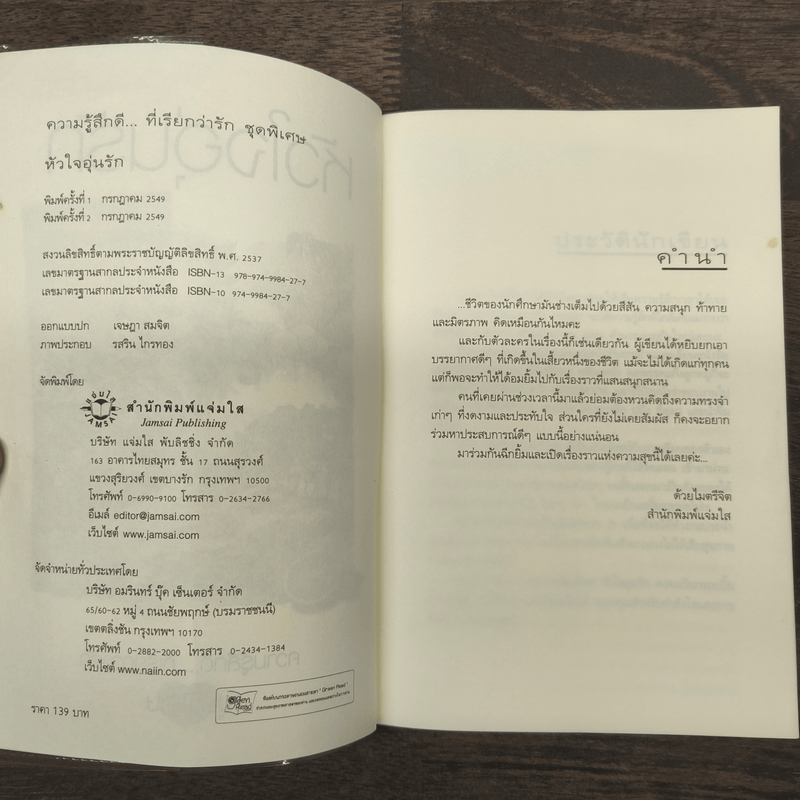 ความรู้สึกดี... ที่เรียกว่ารัก ชุดพิเศษ
หัวใจอุ่นรัก
พิมพ์ครั้งที่ 1 กรกฎาคม 2549
พิมพ์ครั้งที่ 2 กรกฎาคม 2549
สงวนลิขสิทธิ์ตามพระราชบัญญัติลิขสิทธิ์ พ.ศ. 2537
เลขมาตรฐานสากลประจำหนังสือ ISBN-13 978-974-9984-27-7
เลขมาตรฐานสากลประจำหนังสือ ISBN-10 974-9984-27-7
ออกแบบปก เจษฎา สมจิต
ภาพประกอบ รสริน ไกรทอง
จัดพิมพ์โดย
แจ่มใส
JAMSAI
สำนักพิมพ์แจ่มใส
Jamsai Publishing
บริษัท แจ่มใส พับลิชชิ่ง จำกัด
163 อาคารไทยสมุทร ชั้น 17 ถนนสุรวงศ์
แขวงสุริยวงศ์ เขตบางรัก กรุงเทพฯ 10500
โทรศัพท์ 0-6990-9100 โทรสาร 0-2634-2766
อีเมล์ editor@jamsai.com
เว็บไซต์ www.jamsai.com
จัดจำหน่ายทั่วประเทศโดย
บริษัท อมรินทร์ บุ๊ค เซ็นเตอร์ จำกัด
65/60-62 หมู่ 4 ถนนชัยพฤกษ์ (บรมราชชนนี)
เขตตลิ่งชัน กรุงเทพฯ 10170
โทรศัพท์ 0-2882-2000 โทรสาร 0-2434-1384
เว็บไซต์ www.naiin.com
ราคา 139 บาท
คำนำ
...ชีวิตของนักศึกษามันช่างเต็มไปด้วยสีสัน ความสนุก ท้าทาย
และมิตรภาพ คิดเหมือนกันไหมคะ
และกับตัวละครในเรื่องนี้ก็เช่นเดียวกัน ผู้เขียนได้หยิบยกเอา
บรรยากาศดีๆ ที่เกิดขึ้นในเสี้ยวหนึ่งของชีวิต แม้จะไม่ได้เกิดแก่ทุกคน
แต่ก็พอจะทำให้ได้อมยิ้มไปกับเรื่องราวที่แสนสนุกสนาน
คนที่เคยผ่านช่วงเวลานี้มาแล้วย่อมต้องหวนคิดถึงความทรงจำ
เก่าๆ ที่งดงามและประทับใจ ส่วนใครที่ยังไม่เคยสัมผัส ก็คงจะอยาก
ร่วมหาประสบการณ์ดีๆ แบบนี้อย่างแน่นอน
มาร่วมกันฉีกยิ้มและเปิดเรื่องราวแห่งความสุขนี้ได้เลยค่ะ...
ด้วยไมตรีจิต
สำนักพิมพ์แจ่มใส